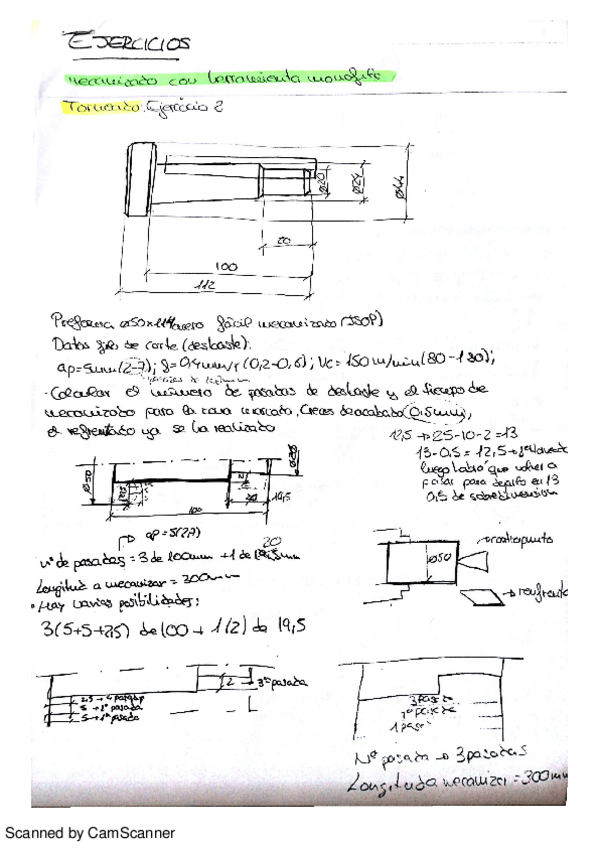 EJERCICIOS
mecanizado con herramienta monofilo
Torneado: Ejercicio 2
Ø20
Ø24
Ø44
20
100
112
Preforma Ø50x114 acero fácil mecanizado (ISOP)
Datos de corte (desbaste):
ap=5mm(2-7); f=0,4mm/r(0,2-0,6); Vc=150m/min(80-180);
· Calcular el número de pasadas de desbaste y el tiempo de
mecanizado para la cara marcado. Creces de acabado (0,5mm),
el refrentado ya se ha realizado
12,5 → 25-10-2=13
13-0,5=12,5 →
luego habrá que volver a
pasar para dejarlo en 13
0,5 de sobredimension
Ø50
2
20
19,5
100
ap=5(2-7)
20
nº de pasadas = 3 de 100mm + 1 de 19,5mm
Longitud a mecanizar = 300mm
· Hay varias posibilidades:
3(5+5+2,5) de 100 + 1(2) de 19,5
contrapunto
Ø50
→ refrenta
2 → 3ª pasada
2,5 →
5 → 2ª pasada
5 → 1ª pasada
3 pasa
2ª pasada
1 pasa
Nº pasada → 3 pasadas
Longitud a mecanizar = 300mm
Scanned by CamScanner